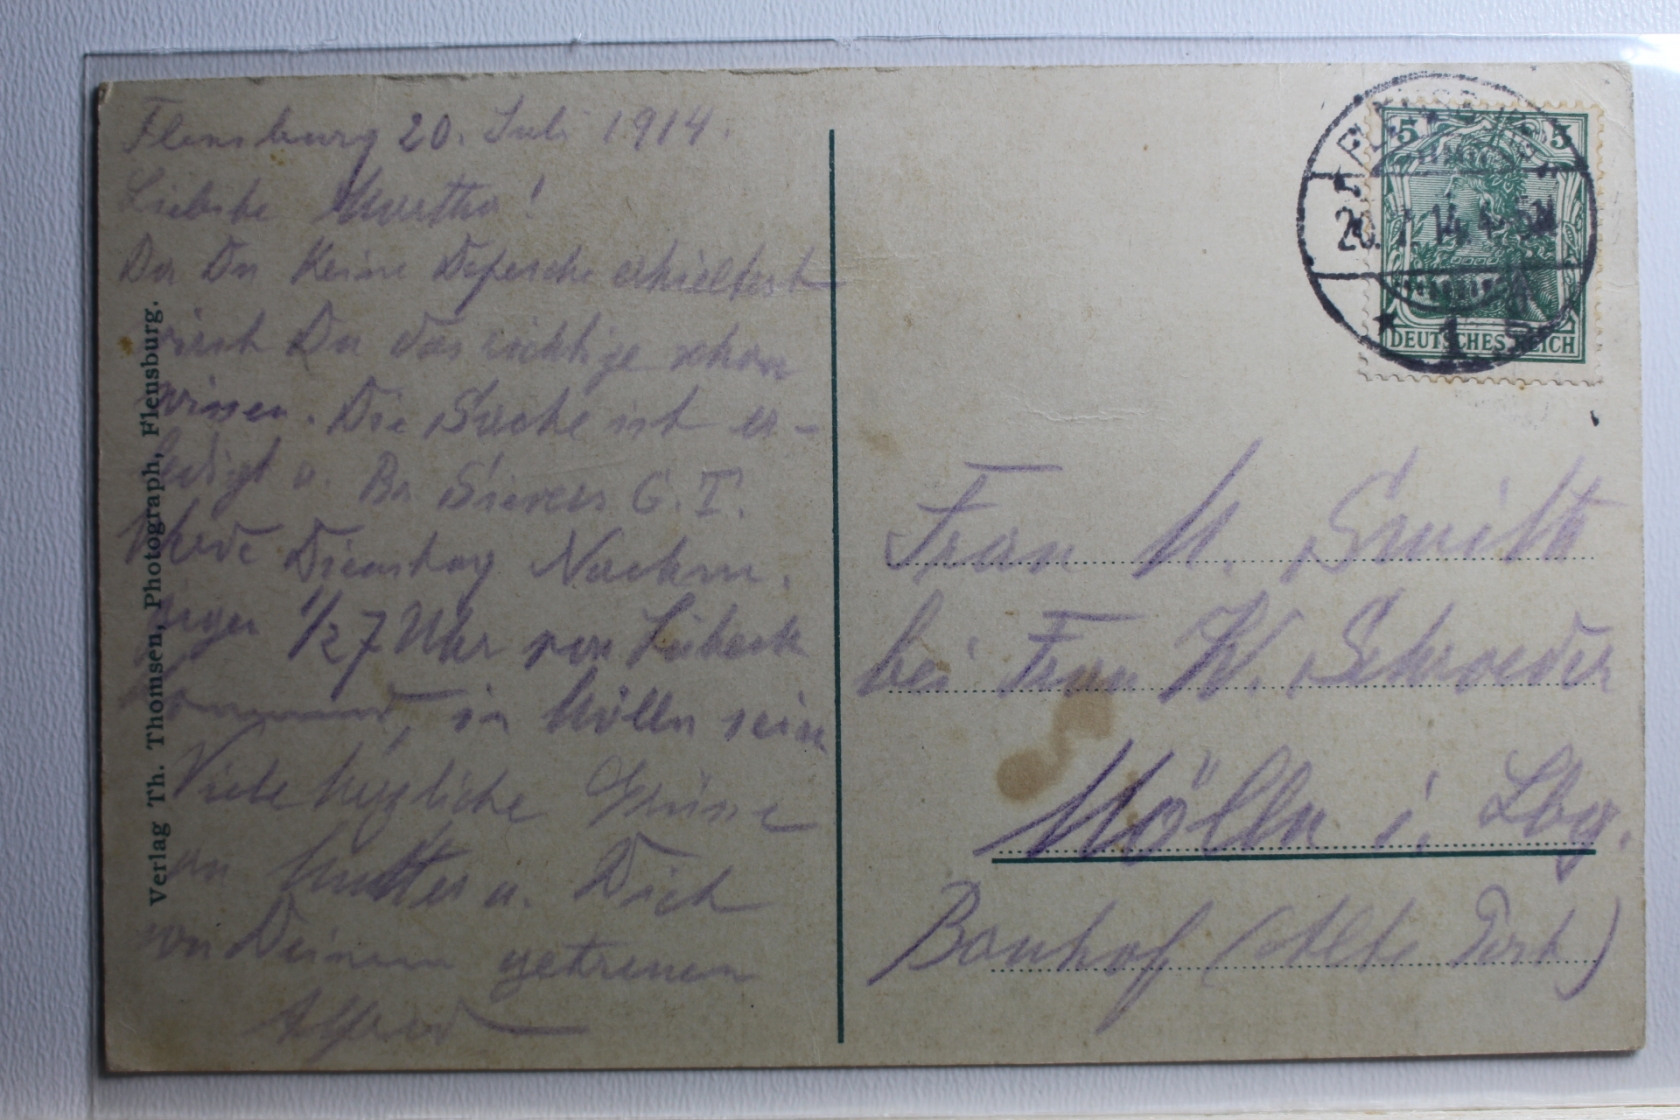 Flensburg 20. Juli 1914.
Liebste Martha!
Da Du Keine Depesche erhieltest
wirst Du das richtige schon
wissen. Die Sache ist er-
ledigt u. Br. Sievers G. T.
Werde Dienstag Nachm.
gegen 1/2 7 Uhr von Lübeck
kommend, in Mölln sein
Viele herzliche Grüsse
an Mutter u. Dich
von Deinem getreuen
Alfred
Verlag Th. Thomsen, Photograph, Flensburg.
5 5
DEUTSCHES REICH
20. 7. 14
* 1
Frau M. Smith
bei Frau W. Schroeder
Mölln i. Lbg.
Bauhof (Alte Post)